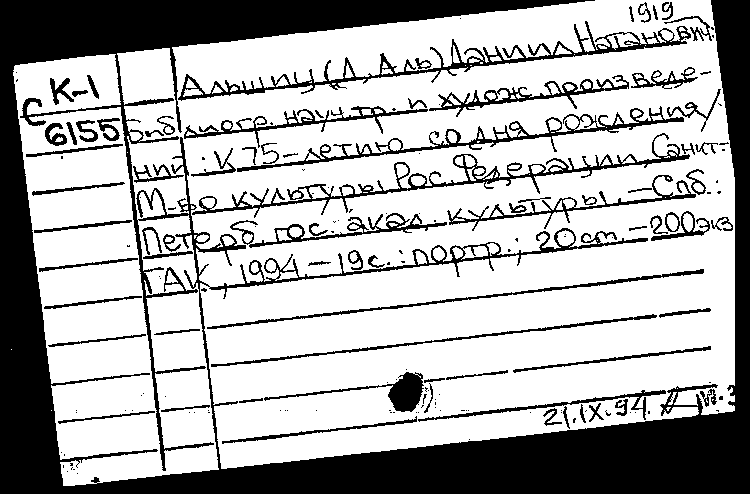 1919
К-1 Альшиц (Д. Аль) Даниил Натанович:
С 6155 Библиогр. науч. тр. и худож. произведе-
ний: К 75-летию со дня рождения/
М-во культуры Рос. Федерации, Санкт-
Петерб. гос. акад. культуры. – Спб.:
ГАК, 1994 – 19 с.: портр.; 20 ст. – 200 экз
21.IX.94.